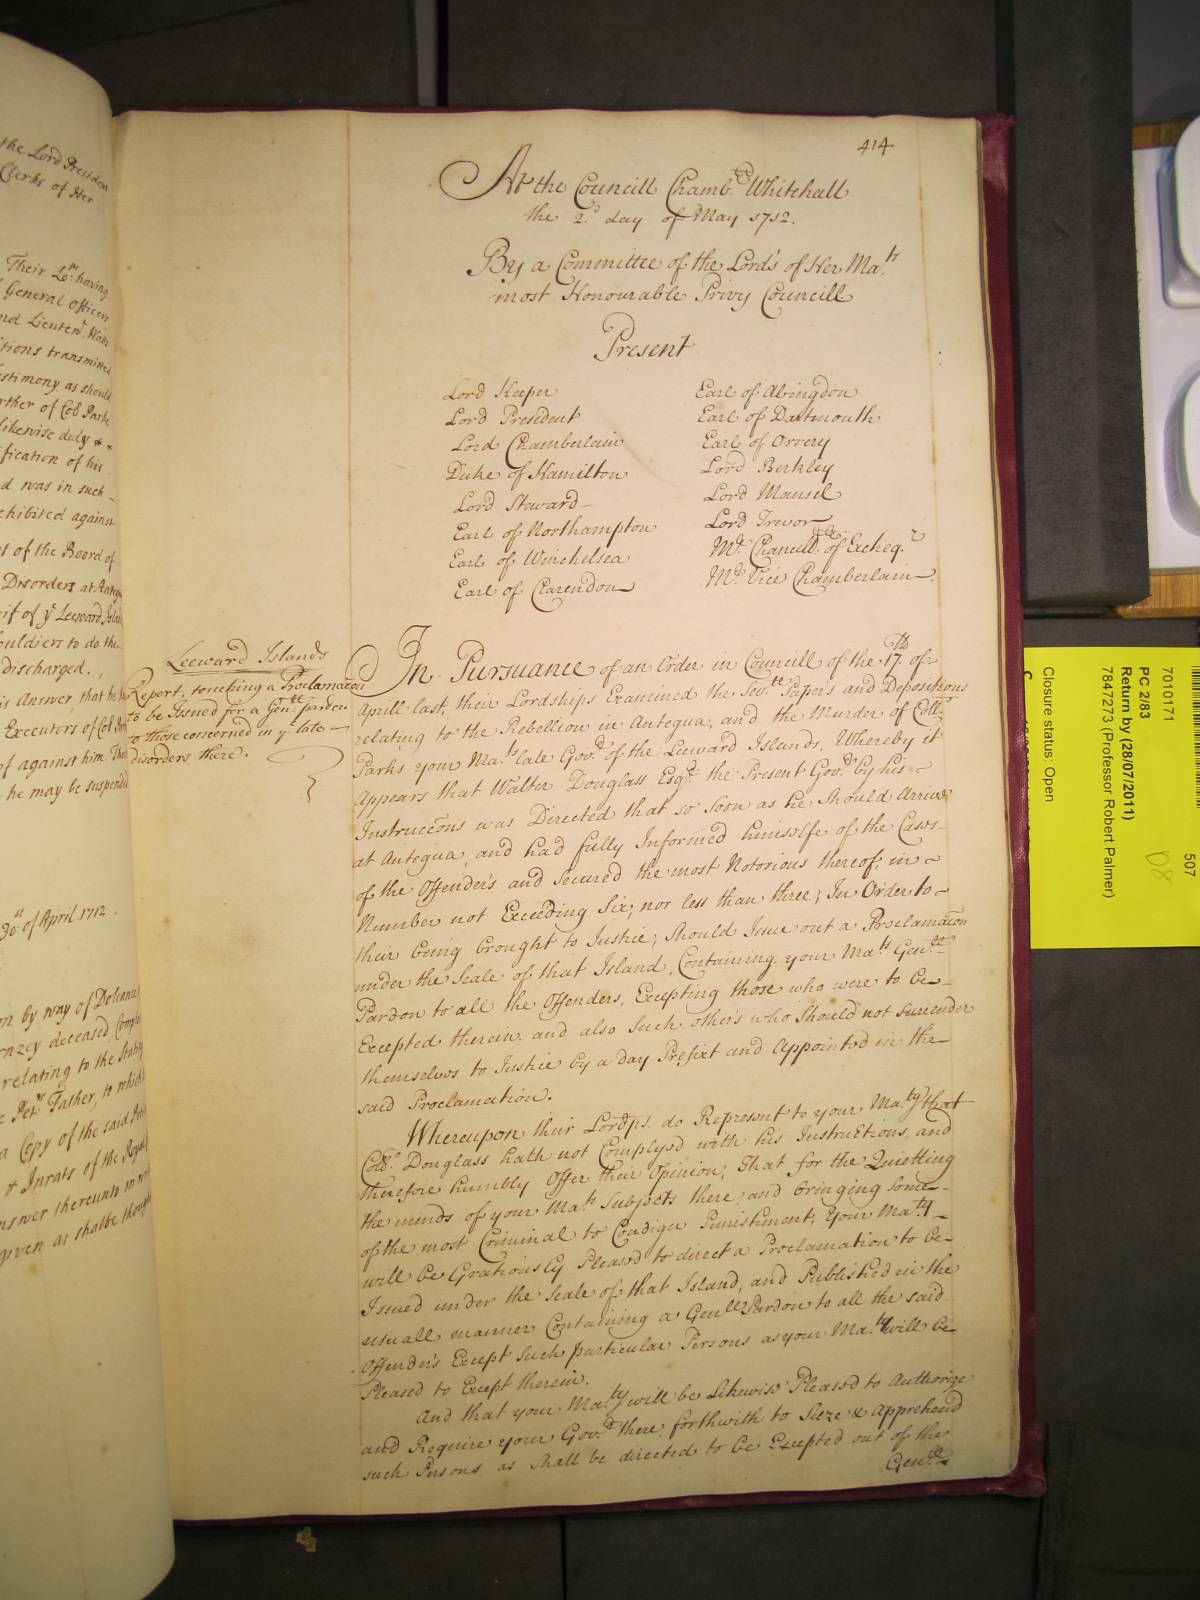 the Lord Presiden
Clerks of Her
Their Lo.ps having
General Officers
nd Lieuten.t Watts
itions transmitted
estimony as should
rther of Coll Park
likewise duly
fication of his
d was in such
chibited against
t of the Board of
Disorders at Antegu
eif of ye Leeward Islds
ouldiers to do the
discharged.
is Answer, that he
Executors of Col
of against him. The
he may be suspended
30th of April 1712
on by way of Doleance
rnzey deceased, Compl
relating to the
e Petrs Father, to which
a Copy of the said
& Jurats of the Royall
nswer thereunto in
given as shalbe though
414
At the Councill Chamb.r Whitehall
the 2.d day of May 1712.
By a Committee of the Lord's of Her Ma.ts
most Honourable Privy Councill
Present
Lord Keeper
Lord President
Lord Chamberlain
Duke of Hamilton
Lord Steward
Earl of Northampton
Earl of Winchelsea
Earl of Clarendon
Earl of Abingdon
Earl of Dartmouth
Earl of Orrery
Lord Berkley
Lord Mansel
Lord Trevor
Mr. Chancellr. of Excheq.r
Mr. Vice Chamberlain
Leeward Islands
Report, touching a Proclamacon
to be Issued for a Genll. pardon
to those concerned in ye late
disorders there.
In Pursuance of an Order in Councill of the 17.th of
Aprill last, their Lordships Examined the Sev.ll Papers and Depositions
relating to the Rebellion in Antegua, and the Murder of Coll.o
Parks your Ma.ts late Gov.r of the Leeward Islands, Whereby it
Appears that Walter Douglass Esq.r the Present Gov.r by his
Instruccons was Directed that so soon as he should Arrive
at Antegua, and had fully Informed himselfe of the Cases
of the Offender's and secured the most Notorious thereof, in
Number not Exceeding Six, nor less than three, In Order to
their being brought to Justice; should Issue out a Proclamacon
under the Seale of that Island, Containing your Ma.ts Gen.ll
Pardon to all the Offenders, Excepting those who were to be
Excepted therein, and also such other's who should not surrender
themselves to Justice by a day Prefixt and Appointed in the
said Proclamation.
Whereupon their Lordps. do Represent to your Ma.ty that
Coll.o Douglass hath not Complyed with his Instructions, and
therefore humbly Offer their Opinion, That for the Quietting
the minds of your Ma.ts Subjects there, and bringing some
of the most Criminal to Condign Punishment, Your Ma.ty
will be Gratiously Pleased to direct a Proclamation to be
Issued under the Seale of that Island, and Published in the
usuall manner Containing a Genll Pardon to all the said
Offender's Except such particular Persons as your Ma.ty will be
Pleased to Except therein.
And that your Ma.ty will be Likewise Pleased to Authorize
and Require your Gov.r there, forthwith to Sieze & Apprehend
such Persons as shall be directed to be Excepted out of the
Gen.ll
7010171
507
PC 2/83
Return by (28/07/2011)
7847273 (Professor Robert Palmer)
D8
Closure status: Open